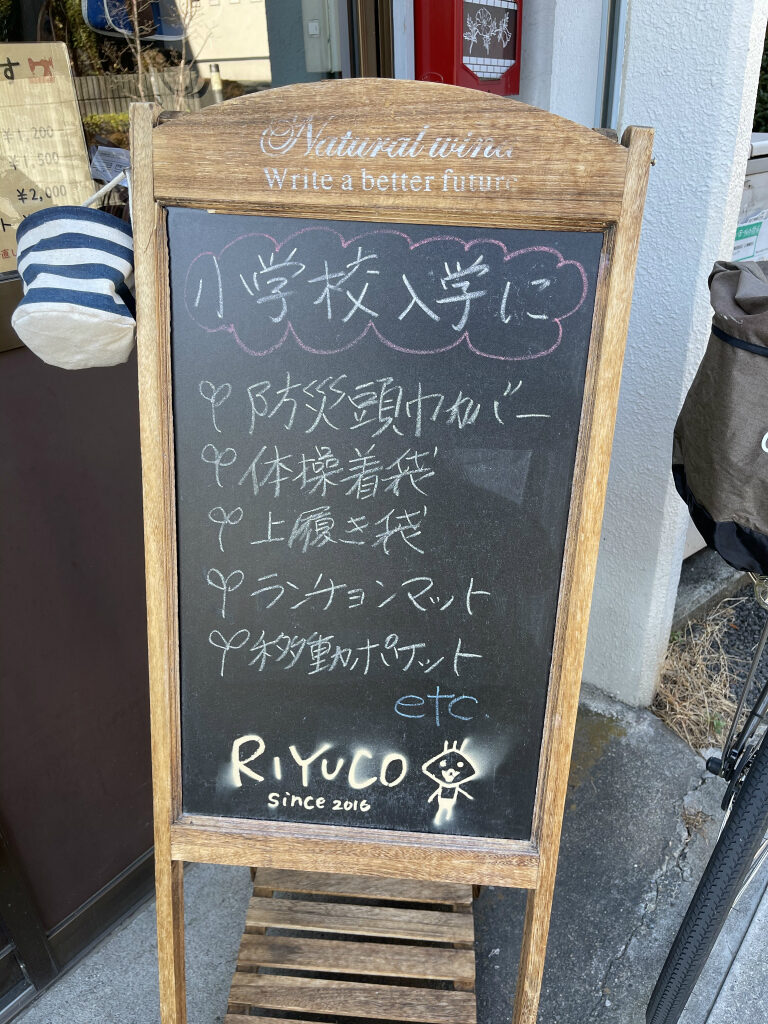 す
¥1,200
¥1,500
¥2,000
Natural wind
Write a better future
小学校入学に
防災頭巾カバー
体操着袋
上履き袋
ランチョンマット
移動ポケット
etc.
RIYUCO
since 2016